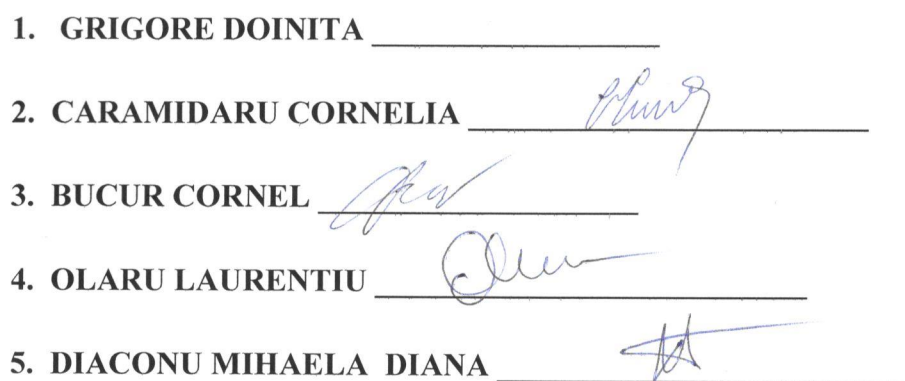 1. GRIGORE DOINITA
2. CARAMIDARU CORNELIA
3. BUCUR CORNEL
4. OLARU LAURENTIU
5. DIACONU MIHAELA DIANA